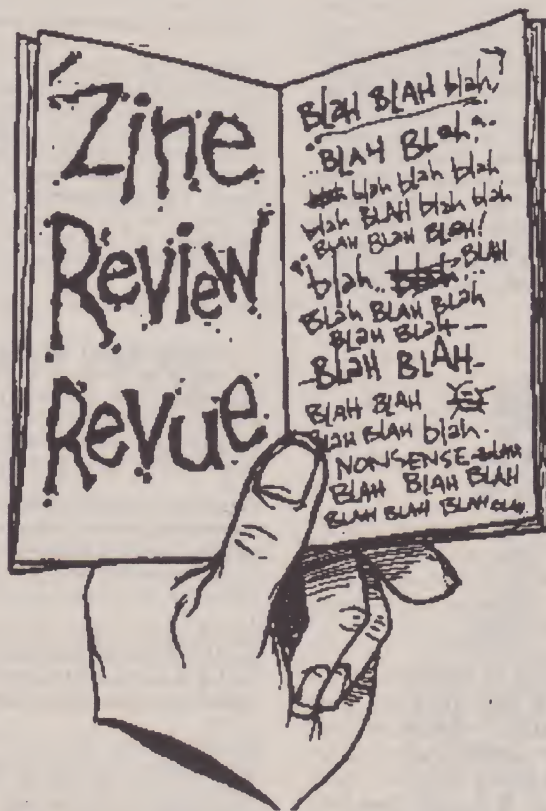 Zine
Review
Revue
BLaH BLAH blah
BLAH BLah
blah blah blah
blah BLAH blah blah
BLAH BLaH BLaH!
BLAH
blah..
BLaH BLAH BLaH
BLaH BLaH
BLaH BLAH
BLAH BLAH
BLAH BLAH blah.
NONSENSE BLAH
BLAH BLAH BLAH
BLAH BLAH BLAH BLAH